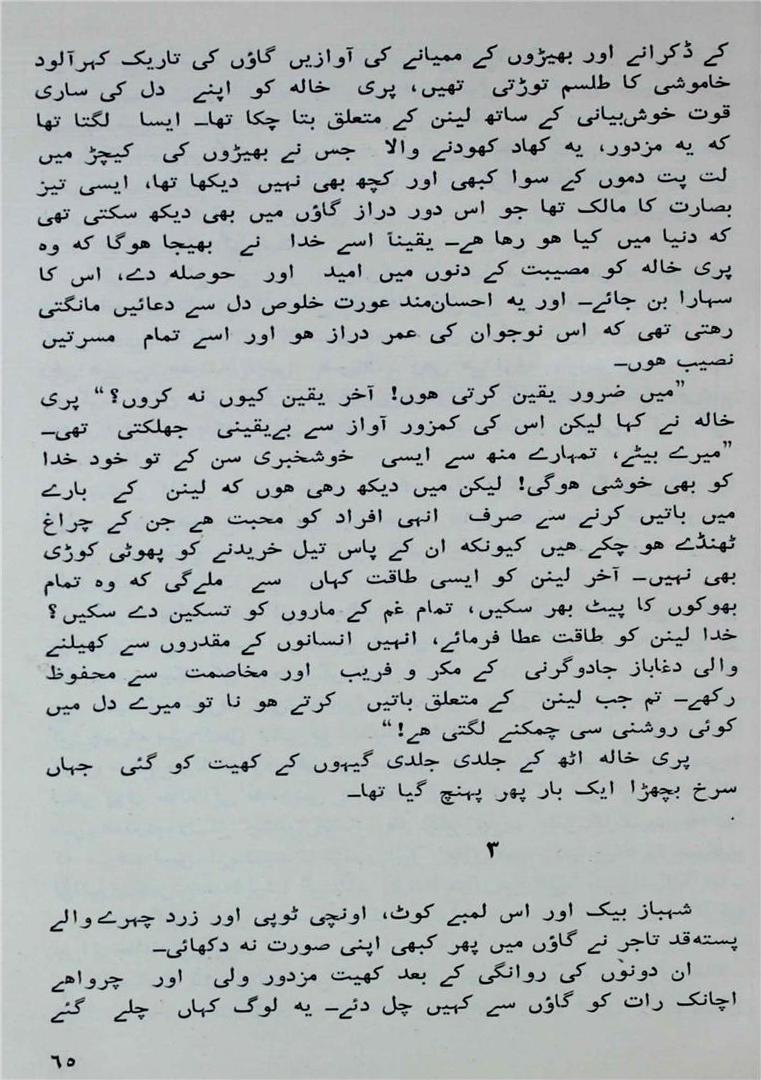 کے ڈکرانے اور بھیڑوں کے ممیانے کی آوازیں گاؤں کی تاریک کہرآلود
خاموشی کا طلسم توڑتی تھیں، پری خالہ کو اپنے دل کی ساری
قوت خوش‌بیانی کے ساتھ لینن کے متعلق بتا چکا تھا۔ ایسا لگتا تھا
کہ یہ مزدور، یہ کھاد کھودنے والا جس نے بھیڑوں کی کیچڑ میں
لت پت دموں کے سوا کبھی اور کچھ بھی نہیں دیکھا تھا، ایسی تیز
بصارت کا مالک تھا جو اس دور دراز گاؤں میں بھی دیکھ سکتی تھی
کہ دنیا میں کیا ہو رہا ہے۔ یقیناً اسے خدا نے بھیجا ہوگا کہ وہ
پری خالہ کو مصیبت کے دنوں میں امید اور حوصلہ دے، اس کا
سہارا بن جائے۔ اور یہ احسان‌مند عورت خلوص دل سے دعائیں مانگتی
رہتی تھی کہ اس نوجوان کی عمر دراز ہو اور اسے تمام مسرتیں
نصیب ہوں۔
”میں ضرور یقین کرتی ہوں! آخر یقین کیوں نہ کروں؟“ پری
خالہ نے کہا لیکن اس کی کمزور آواز سے بےیقینی جھلکتی تھی۔
”میرے بیٹے، تمہارے منھ سے ایسی خوشخبری سن کے تو خود خدا
کو بھی خوشی ہوگی! لیکن میں دیکھ رہی ہوں کہ لینن کے بارے
میں باتیں کرنے سے صرف انہی افراد کو محبت ہے جن کے چراغ
ٹھنڈے ہو چکے ہیں کیونکہ ان کے پاس تیل خریدنے کو پھوٹی کوڑی
بھی نہیں۔ آخر لینن کو ایسی طاقت کہاں سے ملےگی کہ وہ تمام
بھوکوں کا پیٹ بھر سکیں، تمام غم کے ماروں کو تسکین دے سکیں؟
خدا لینن کو طاقت عطا فرمائے، انہیں انسانوں کے مقدروں سے کھیلنے
والی دغاباز جادوگرنی کے مکر و فریب اور مخاصمت سے محفوظ
رکھے۔ تم جب لینن کے متعلق باتیں کرتے ہو نا تو میرے دل میں
کوئی روشنی سی چمکنے لگتی ہے!“
پری خالہ اٹھ کے جلدی جلدی گیہوں کے کھیت کو گئی جہاں
سرخ بچھڑا ایک بار پھر پہنچ گیا تھا۔
۳
شہباز بیک اور اس لمبے کوٹ، اونچی ٹوپی اور زرد چہرے والے
پستہ‌قد تاجر نے گاؤں میں پھر کبھی اپنی صورت نہ دکھائی۔
ان دونوں کی روانگی کے بعد کھیت مزدور ولی اور چرواہے
اچانک رات کو گاؤں سے کہیں چل دئے۔ یہ لوگ کہاں چلے گئے
٦٥